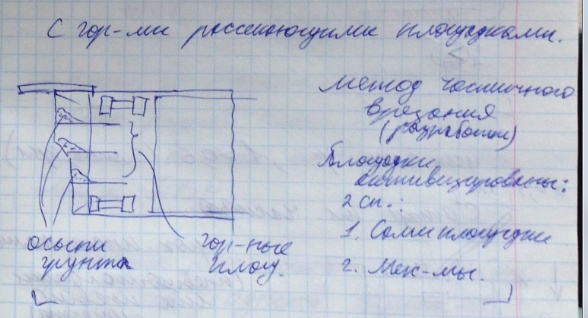 С гор-ми рассекающими площадками.
метод частичного
врезания
(разработки)
Площадки
активизированы:
2 сп.:
1. Сами площадки
2. Мех-мы.
осыпи
грунта
гор-ные
площ.